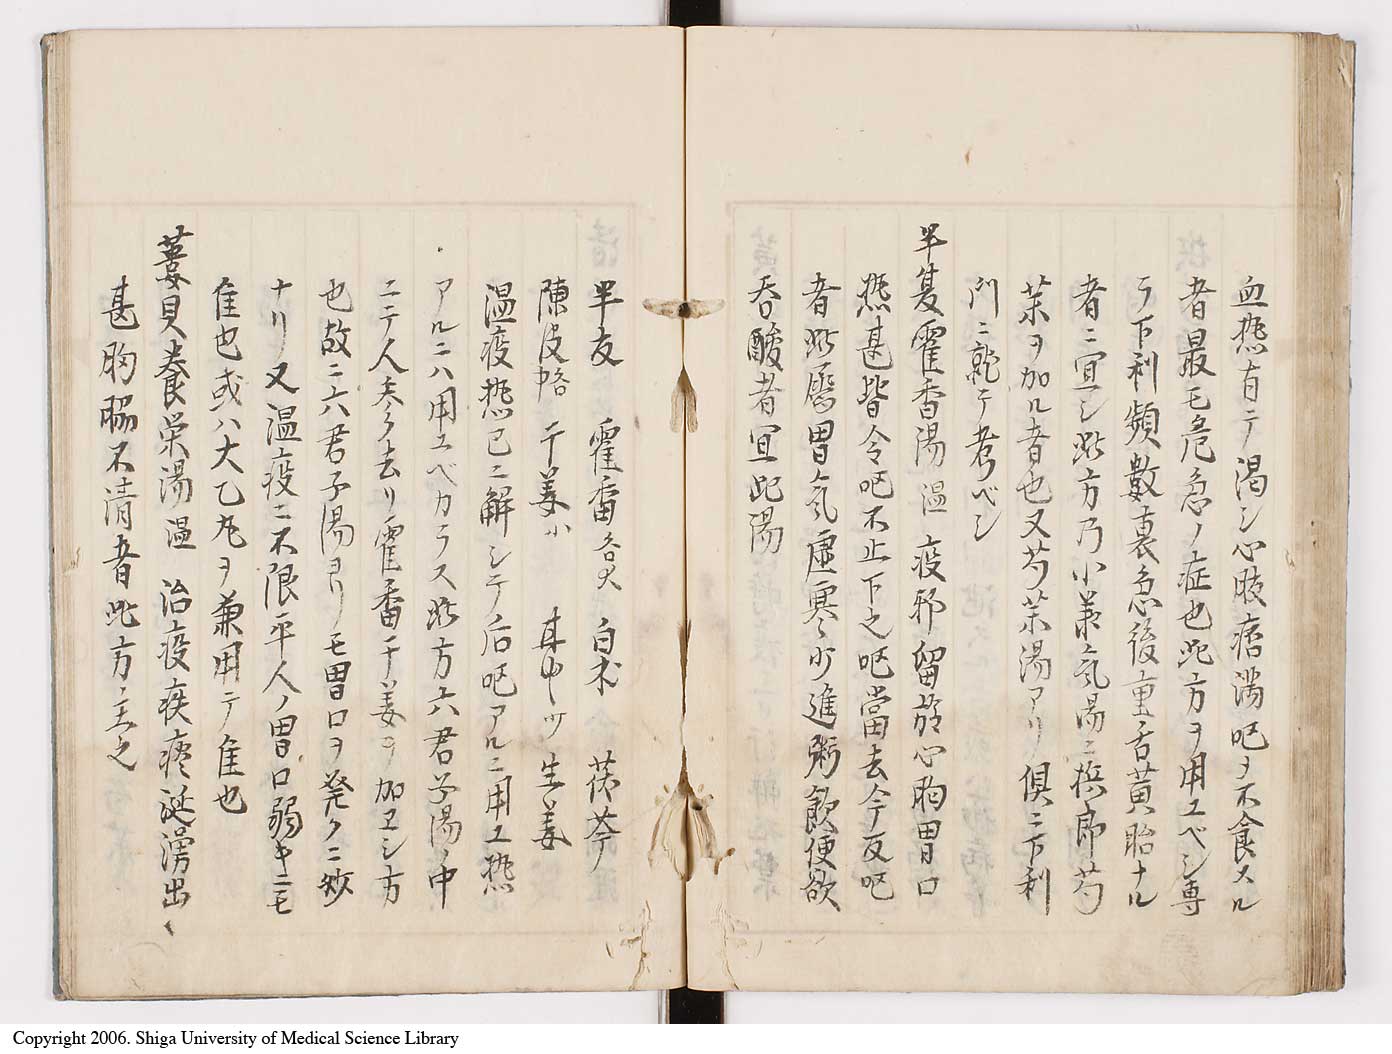 血熱有テ渇シ心肢痞満呕ヲ不食スル
者最モ危急ノ症也此方ヲ用ユベシ専
ラ下利頻數裏急後重舌黄胎ナル
者ニ宜シ此方乃小羕気湯ニ梹郎芍
茱ヲ加ル者也又芍茱湯アリ倶ニ下利
門ニ就テ考ベシ
半夏霍香湯温 疫邪留於心胸胃口
熱甚皆令呕不止下之呕當去今反呕
者此属胃気虚寒少進粥飲便欲
呑酸者宜此湯
半夏 霍香各 白朮 茯苓
陳皮 干姜 甘中 生姜
温疫熱已ニ解シテ后呕アルニ用ユ熱
アルニハ用ユベカラス此方六君子湯ノ中
ニテ人参ク去リ霍香干姜ヲ加ヱシ方
也故ニ六君子湯ヨリモ胃口ヲ発クニ妙
ナリ又温疫ニ不限平人ノ胃口弱キニモ
隹也或ハ大乙丸ヲ兼用テ隹也
蔞貝養栄湯温 治疫疾痰涎湧出
甚胸膈不清者此方主之
Copyright 2006. Shiga University of Medical Science Library